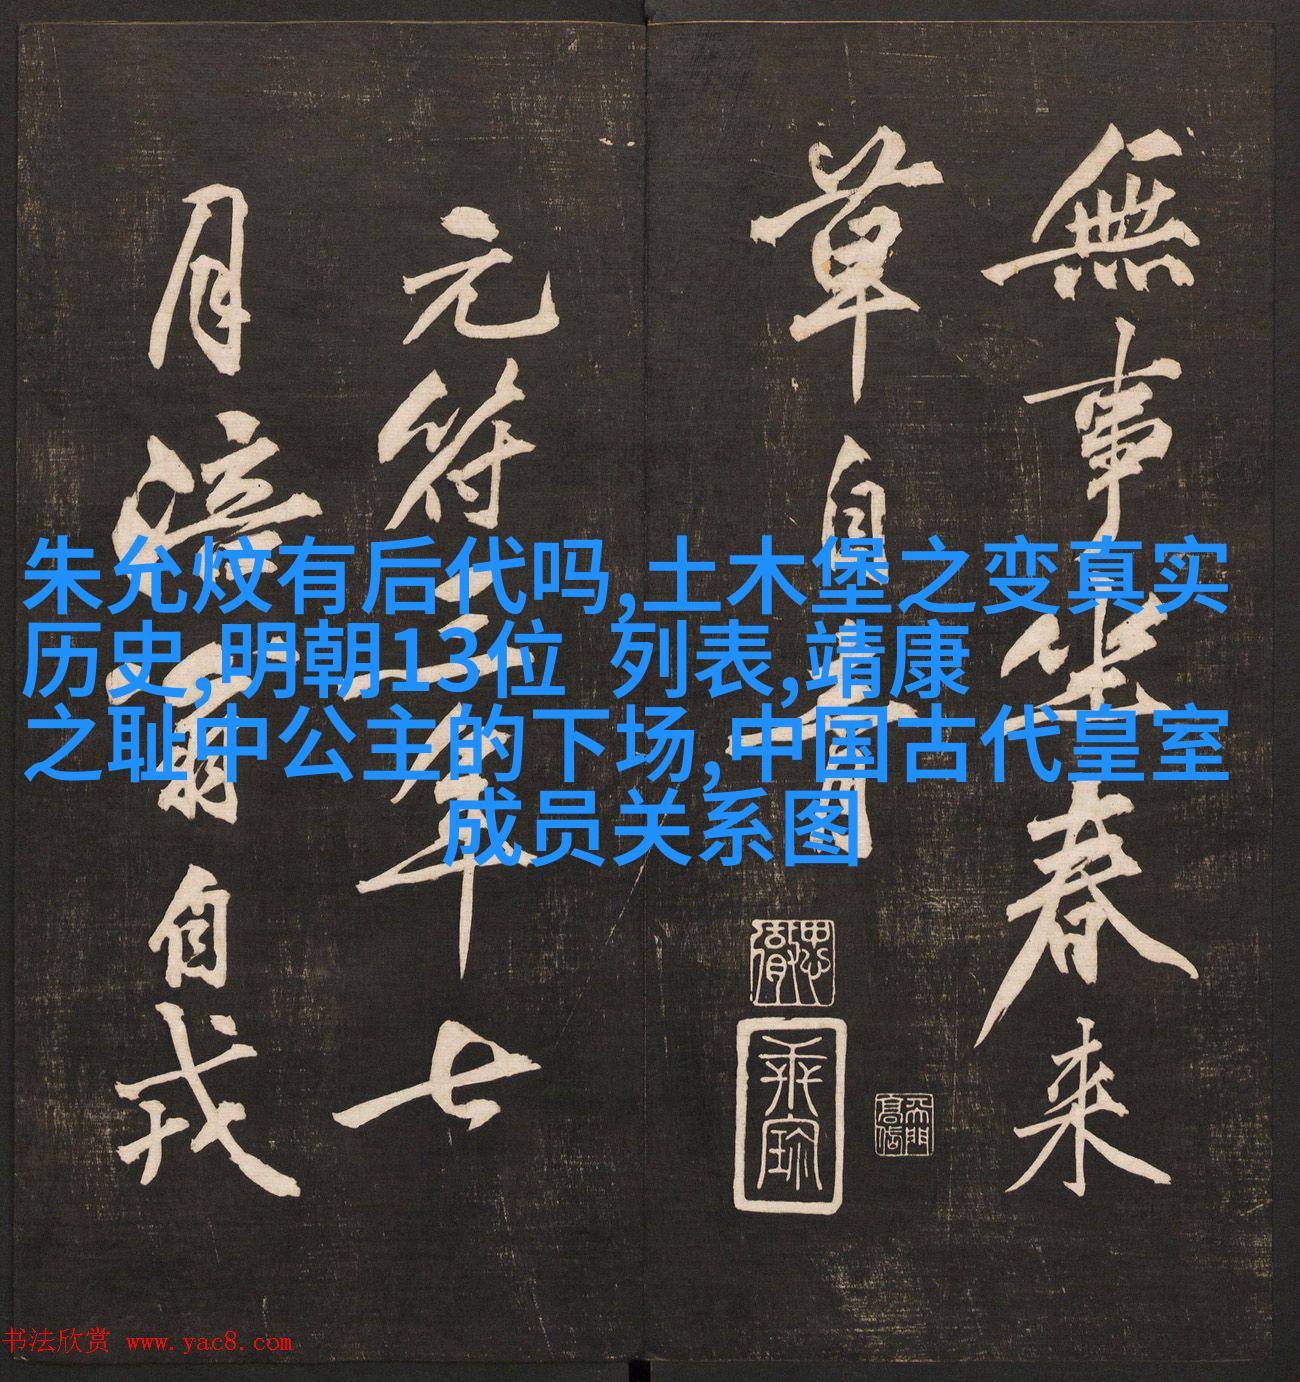 無事坐春来
草自青
元符三年七
月涪翁自戎
朱允炆有后代吗,土木堡之变真实
历史,明朝13位 列表,靖康
之耻中公主的下场,中国古代皇室
成员关系图
书法欣赏 www.yac8.com